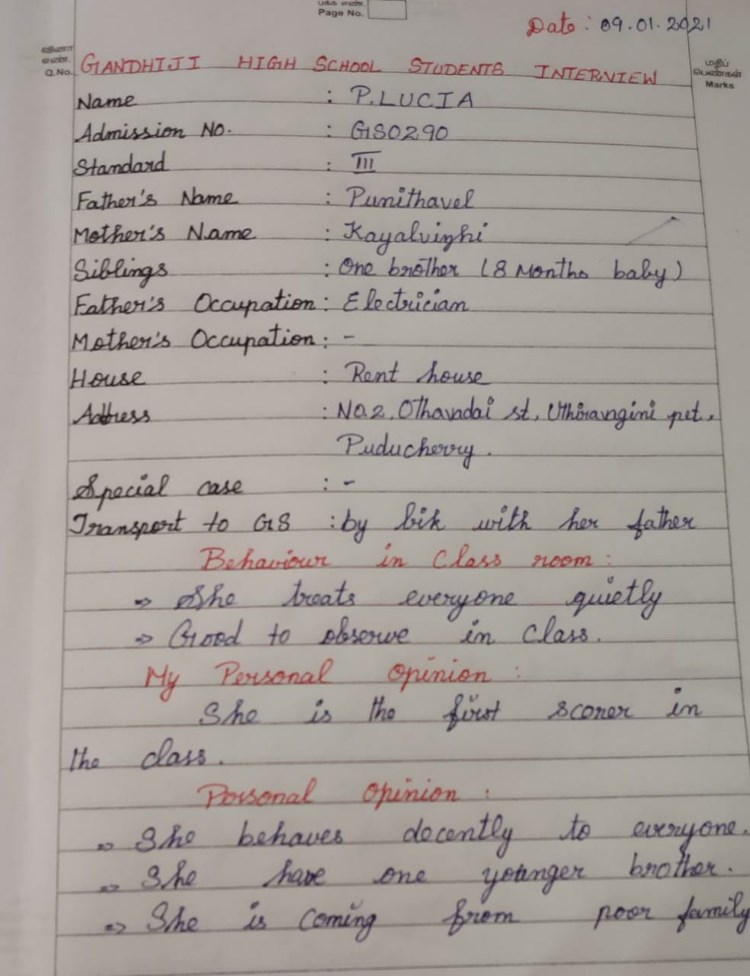 பக்க எண்.
Page No.
Date : 09.01.2021
வினா
எண்.
Q.No.
GANDHIJI HIGH SCHOOL STUDENTS INTERVIEW
மதிப்
பெண்கள்
Marks
Name : P.LUCIA
Admission No. : GS0290
Standard : III
Father's Name : Punithavel
Mother's Name : Kayalvizhi
Siblings : One brother (8 Months baby)
Father's Occupation : Electrician
Mother's Occupation : -
House : Rent house
Address : No.2, Othavadai st, pet,
Puducherry.
Special case : -
Transport to GS : by bik with her father
Behaviour in Class room :
⇒ She treats everyone quietly
⇒ Good to observe in class.
My Personal Opinion :
She is the first scorer in
the class.
Personal Opinion :
⇒ She behaves decently to everyone.
⇒ She have one younger brother.
⇒ She is coming from poor family